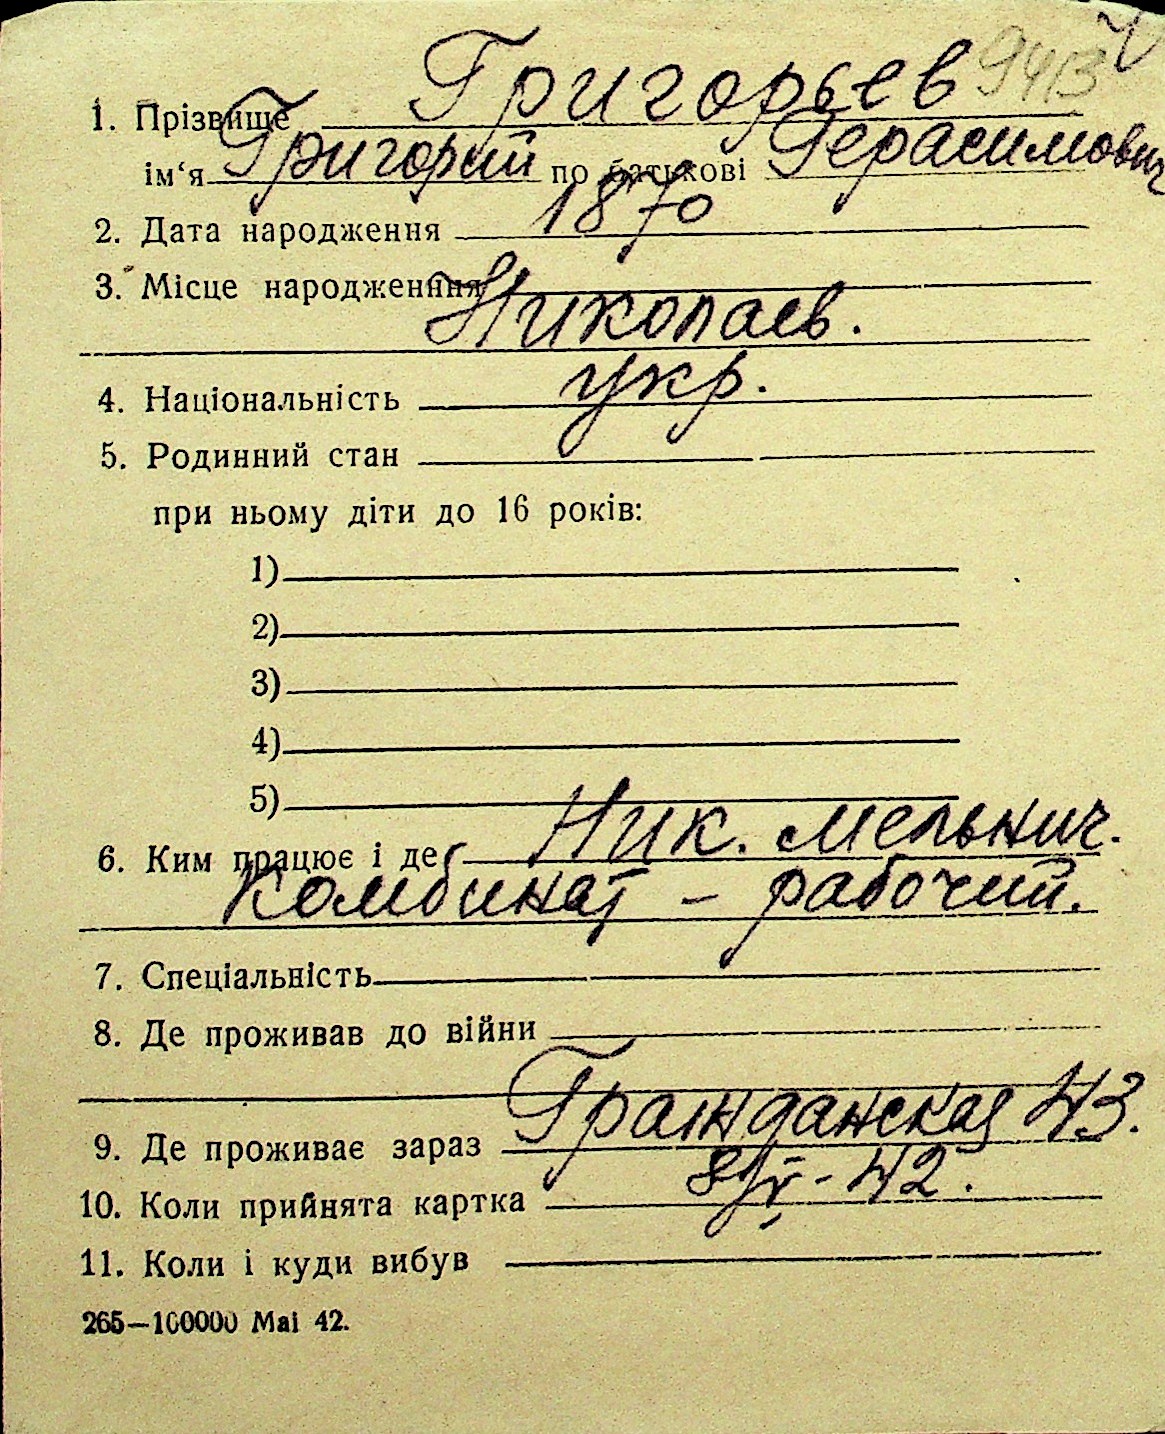 Григорьев 9413
1. Прізвище
ім‘я Григорий по батькові Герасимович
2. Дата народження 1870
3. Місце народженння
Николаев.
4. Національність укр.
5. Родинний стан
при ньому діти до 16 років:
1)
2)
3)
4)
5)
6. Ким працює і де Ник. мельнич.
комбинат – рабочий.
7. Спеціальність
8. Де проживав до війни
9. Де проживає зараз Гражданская 43.
10. Коли прийнята картка 8/V - 42.
11. Коли і куди вибув
265—100000 Mai 42.